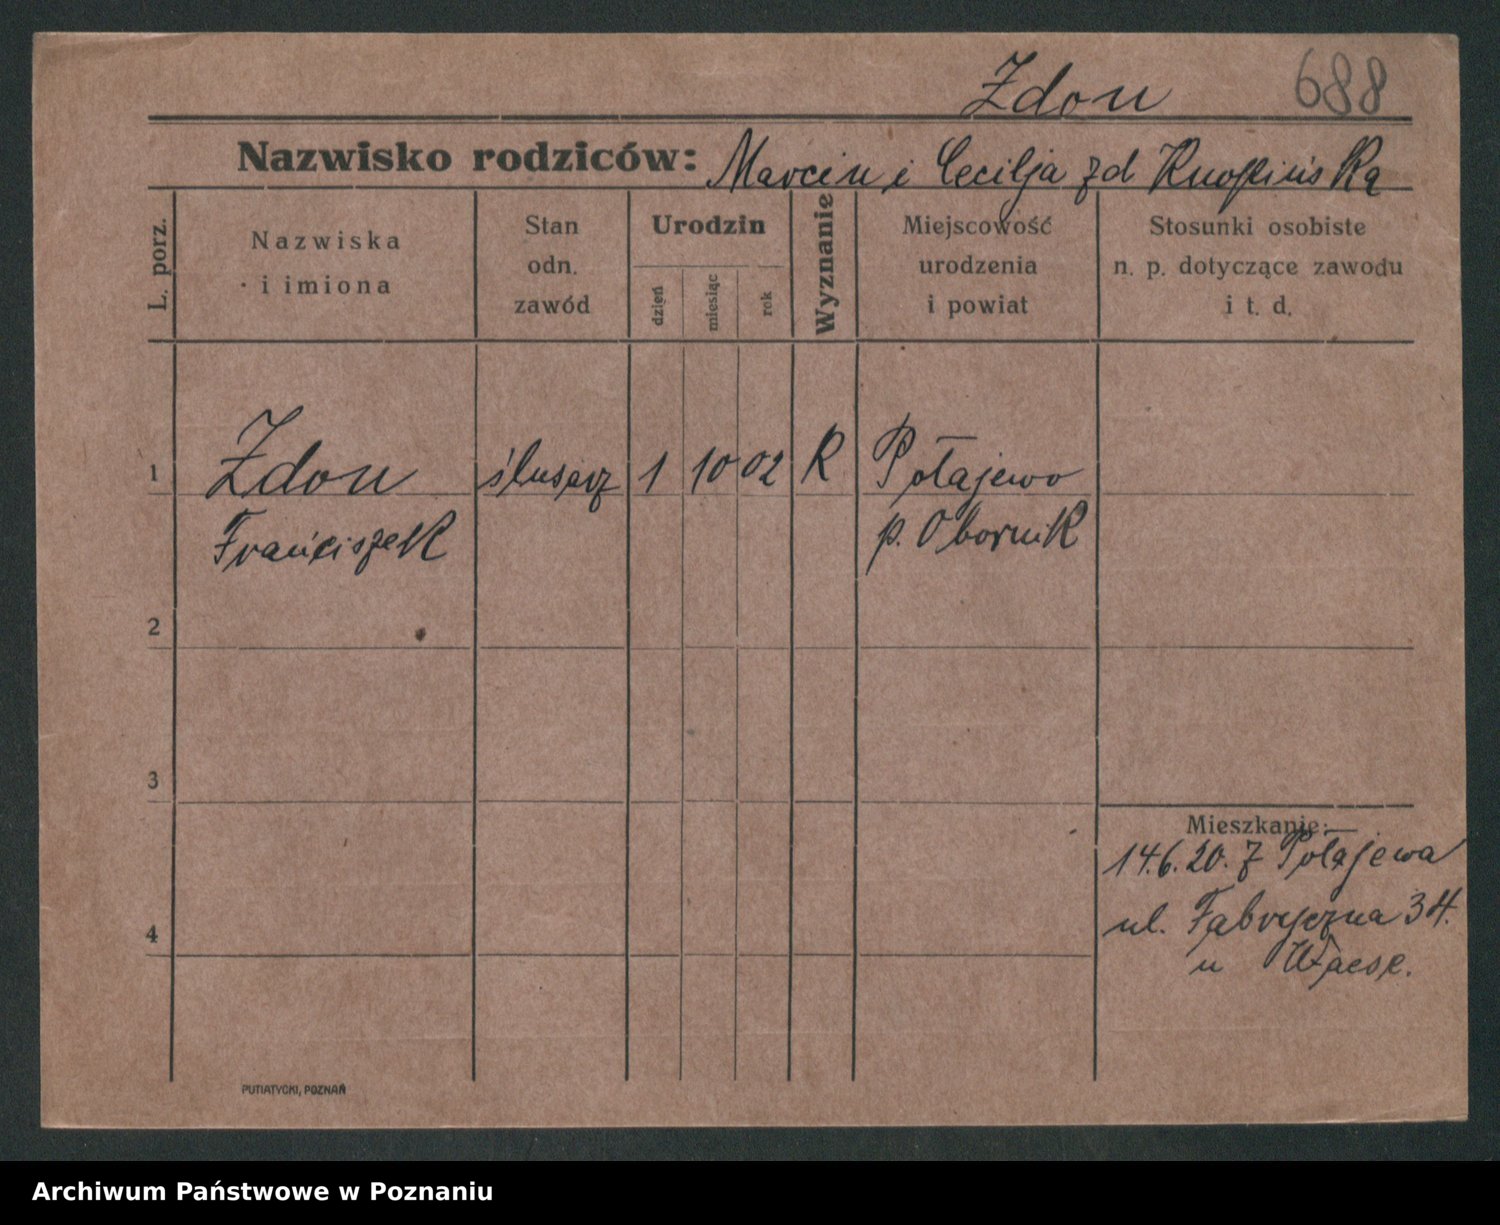 Zdon 688
Nazwisko rodziców: Marcin i Cecilja zd Knopińska
L. porz.
Nazwiska
i imiona
Stan
odn.
zawód
Urodzin
dzień
miesiąc
rok
Wyznanie
Miejscowość
urodzenia
i powiat
Stosunki osobiste
n. p. dotyczące zawodu
i t. d.
1 Zdon ślusarz 1 10 02 R Połajewo
Franciszek p. Obornik
2
3
Mieszkanie:
14.6.20. z Połajewa
ul. Fabryczna 34.
4
u
PUTIATYCKI, POZNAŃ
Archiwum Państwowe w Poznaniu